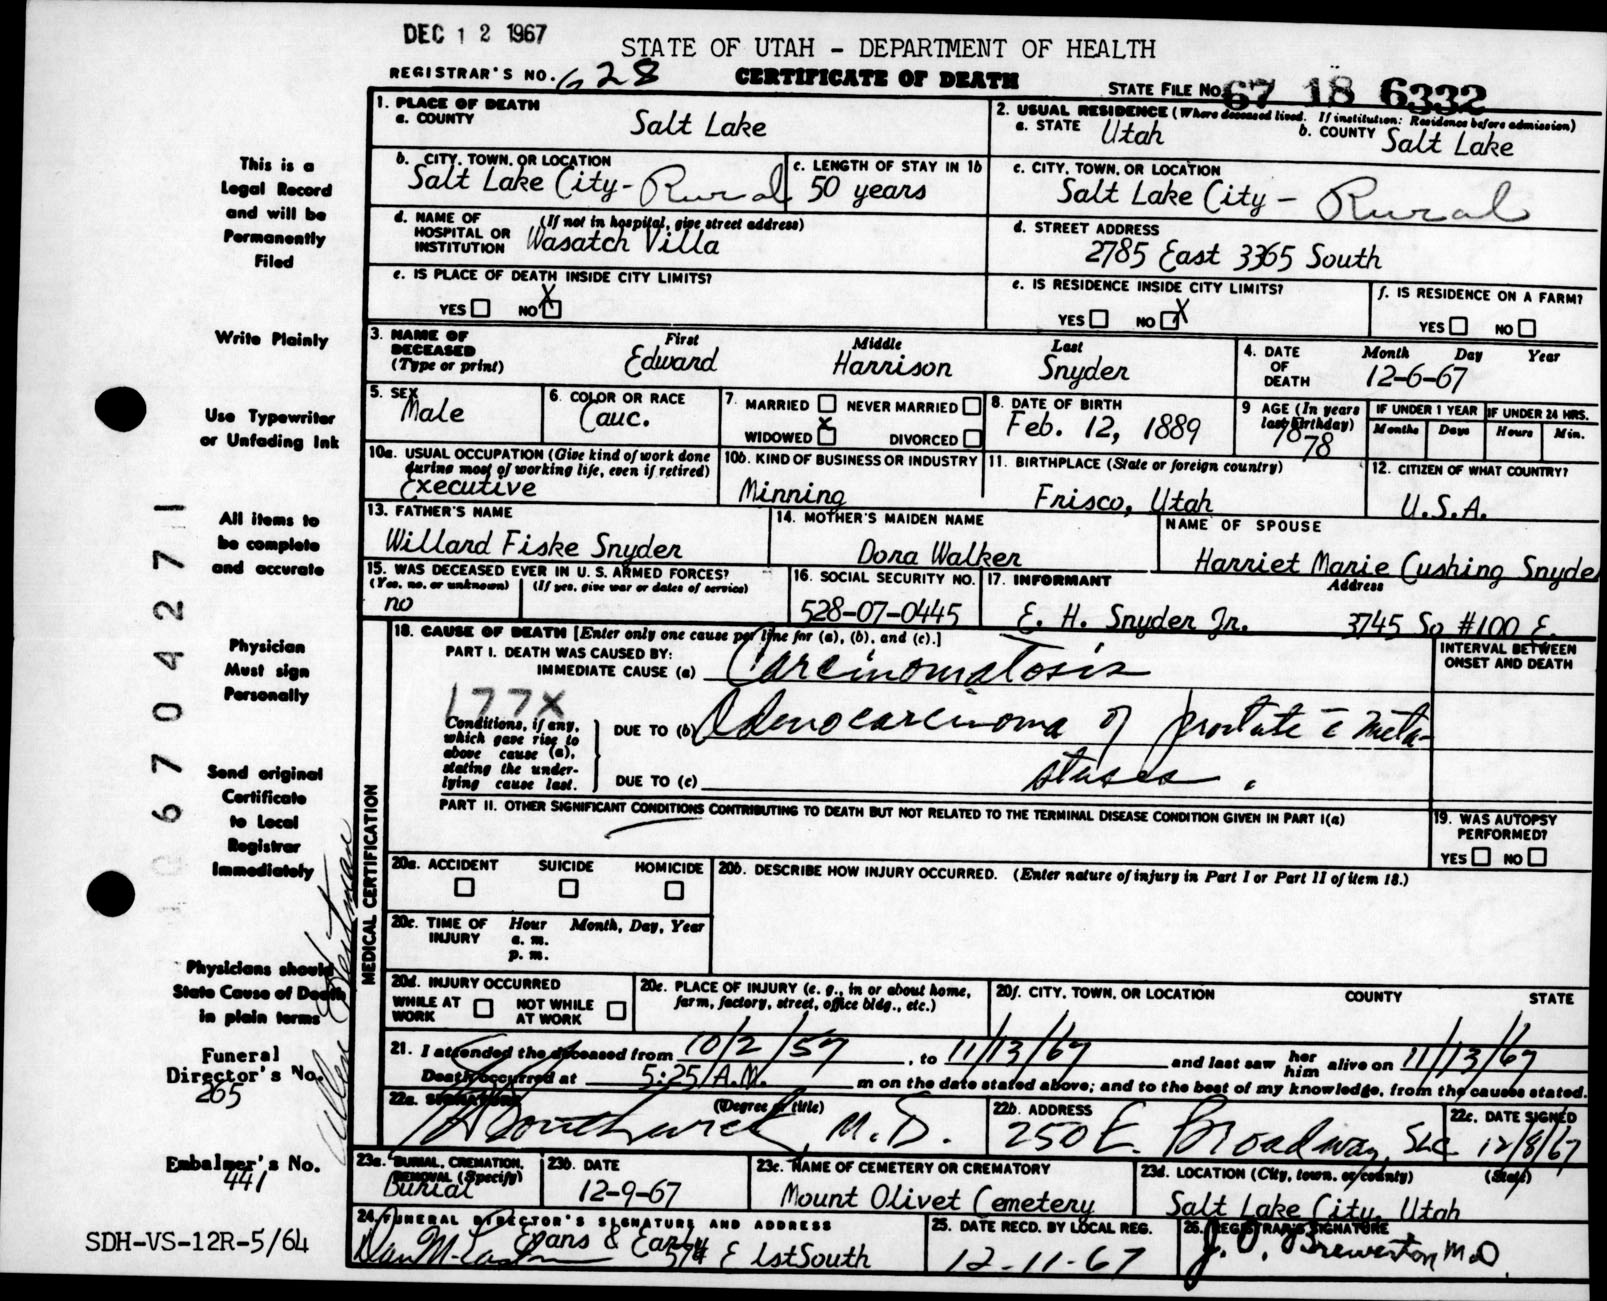 DEC 12 1967
STATE OF UTAH - DEPARTMENT OF HEALTH
REGISTRAR'S NO. 628
CERTIFICATE OF DEATH
STATE FILE NO. 67 18 6332
1. PLACE OF DEATH
a. COUNTY
Salt Lake
2. USUAL RESIDENCE (Where deceased lived. If institution: Residence before admission)
a. STATE Utah
b. COUNTY Salt Lake
b. CITY, TOWN, OR LOCATION
Salt Lake City - Rural
c. LENGTH OF STAY IN 1b
50 years
c. CITY, TOWN, OR LOCATION
Salt Lake City - Rural
d. NAME OF HOSPITAL OR INSTITUTION
(If not in hospital, give street address)
Wasatch Villa
d. STREET ADDRESS
2785 East 3365 South
e. IS PLACE OF DEATH INSIDE CITY LIMITS?
YES NO X
e. IS RESIDENCE INSIDE CITY LIMITS?
YES NO X
f. IS RESIDENCE ON A FARM?
YES NO
3. NAME OF DECEASED
(Type or print)
First Middle Last
Edward Harrison Snyder
4. DATE OF DEATH
Month Day Year
12-6-67
5. SEX
Male
6. COLOR OR RACE
Cauc.
7. MARRIED NEVER MARRIED
WIDOWED X DIVORCED
8. DATE OF BIRTH
Feb. 12, 1889
9 AGE (In years last birthday)
78
IF UNDER 1 YEAR
Months Days
IF UNDER 24 HRS.
Hours Min.
10a. USUAL OCCUPATION (Give kind of work done during most of working life, even if retired)
Executive
10b. KIND OF BUSINESS OR INDUSTRY
Minning
11. BIRTHPLACE (State or foreign country)
Frisco, Utah
12. CITIZEN OF WHAT COUNTRY?
U.S.A.
13. FATHER'S NAME
Willard Fiske Snyder
14. MOTHER'S MAIDEN NAME
Dora Walker
NAME OF SPOUSE
Harriet Marie Cushing Snyde
15. WAS DECEASED EVER IN U. S. ARMED FORCES?
(Yes, no, or unknown) (If yes, give war or dates of service)
no
16. SOCIAL SECURITY NO.
528-07-0445
17. INFORMANT
Address
E. H. Snyder Jr. 3745 So #100 E.
MEDICAL CERTIFICATION
18. CAUSE OF DEATH [Enter only one cause per line for (a), (b), and (c).]
PART I. DEATH WAS CAUSED BY:
IMMEDIATE CAUSE (a) Carcinomatosis
INTERVAL BETWEEN ONSET AND DEATH
177X
Conditions, if any,
which gave rise to
above cause (a),
stating the under-
lying cause last.
DUE TO (b) Adenocarcinoma of prostate c̄ meta-
DUE TO (c) stases.
PART II. OTHER SIGNIFICANT CONDITIONS CONTRIBUTING TO DEATH BUT NOT RELATED TO THE TERMINAL DISEASE CONDITION GIVEN IN PART I(a)
19. WAS AUTOPSY PERFORMED?
YES NO
20a. ACCIDENT SUICIDE HOMICIDE
20b. DESCRIBE HOW INJURY OCCURRED. (Enter nature of injury in Part I or Part II of item 18.)
20c. TIME OF INJURY
Hour Month, Day, Year
a. m.
p. m.
20d. INJURY OCCURRED
WHILE AT WORK NOT WHILE AT WORK
20e. PLACE OF INJURY (e. g., in or about home, farm, factory, street, office bldg., etc.)
20f. CITY, TOWN, OR LOCATION COUNTY STATE
21. I attended the deceased from 10/2/57, to 11/13/67 and last saw her him alive on 11/13/67
Death occurred at 5:25 A.M. m on the date stated above; and to the best of my knowledge, from the causes stated.
22a. SIGNATURE
(Degree or title)
Southwick, M.D.
22b. ADDRESS
250 E. Broadway, SLC
22c. DATE SIGNED
12/8/67
23a. BURIAL, CREMATION, REMOVAL (Specify)
Burial
23b. DATE
12-9-67
23c. NAME OF CEMETERY OR CREMATORY
Mount Olivet Cemetery
23d. LOCATION (City, town, or county) (State)
Salt Lake City, Utah
24. FUNERAL DIRECTOR'S SIGNATURE AND ADDRESS
Evans & Early
574 E 1st South
25. DATE RECD. BY LOCAL REG.
12-11-67
26. REGISTRAR'S SIGNATURE
J. O. Brewerton M.D.
This is a
Legal Record
and will be
Permanently
Filed
Write Plainly
Use Typewriter
or Unfading Ink
All items to
be complete
and accurate
Physician
Must sign
Personally
Send original
Certificate
to Local
Registrar
Immediately
Physicians should
State Cause of Death
in plain terms
Funeral
Director's No.
265
Embalmer's No.
441
SDH-VS-12R-5/64